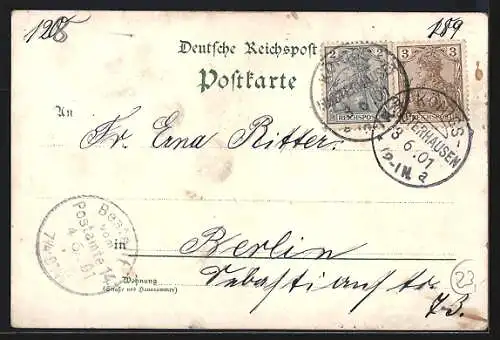 1208
189
Deutsche Reichspost
Postkarte
2 2
REICHSPOST
3 3
REICHSPOST
KÖNIGS-
WUSTERHAUSEN
3 6.01
12-1N. a
An
Fr. Erna Ritter.
Bestellt
vom
Postamte 14
4.6.01
in
Berlin
Wohnung
(Straße und Hausnummer)
Sebastianstr.
73.
23